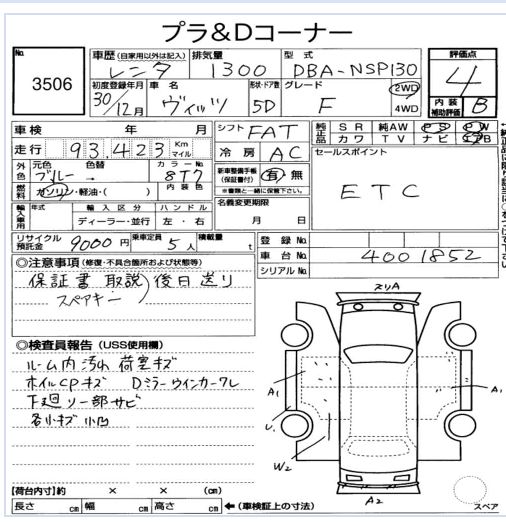 プラ&Dコーナー
No. 3506
車歴 (自家用以外は記入) レンタ
排気量 1300
型式 DBA-NSP130
評価点 4
初度登録年月 30/12月
車名 ヴィッツ
形状・ドア数 5D
グレード F
2WD
4WD
内装補助評価 B
車検 年 月
シフト FAT
純正品 SR 純AW PS PW
カワ TV ナビ
走行 93,423 Km マイル
冷房 AC
セールスポイント
ETC
外色 元色 ブルー 色替 カラーNo. 8T7
新車整備手帳 (保証書付) 有・無
※書類と一緒に保管下さい。
燃料 ガソリン・軽油・( ) 内装色
名義変更期限
月 日
輸入車用 年式 輸入区分 ハンドル
ディーラー・並行 左・右
リサイクル預託金 9000円 乗車定員 5人 積載量 t
登録No.
車台No. 4001852
シリアルNo.
◎注意事項 (修復・不具合箇所および状態等)
保証書 取説 後日送り
スペアキー
◎検査員報告 (USS使用欄)
ルーム内汚れ 荷室キズ
ホイルCPキズ Dミラーウインカーワレ
下廻り一部サビ
各小キズ 小凹
スリA
A1
A1
U1
W2
A2
スペア
【荷台内寸】約 × × (cm)
長さ cm 幅 cm 高さ cm ←(車検証上の寸法)